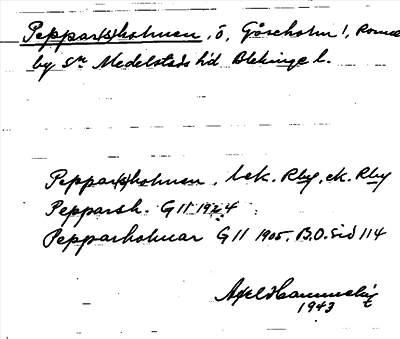 Peppar(s)holmen, ö, Gåseholm!, Ronne
by sn Medelstads hd. Blekinge l.
Peppar(s)holmen, lek. Rby, ek. Rby
Pepparsh. G II 1924
Pepparholmar G II 1905. B.O. sid 114
Axel
1943